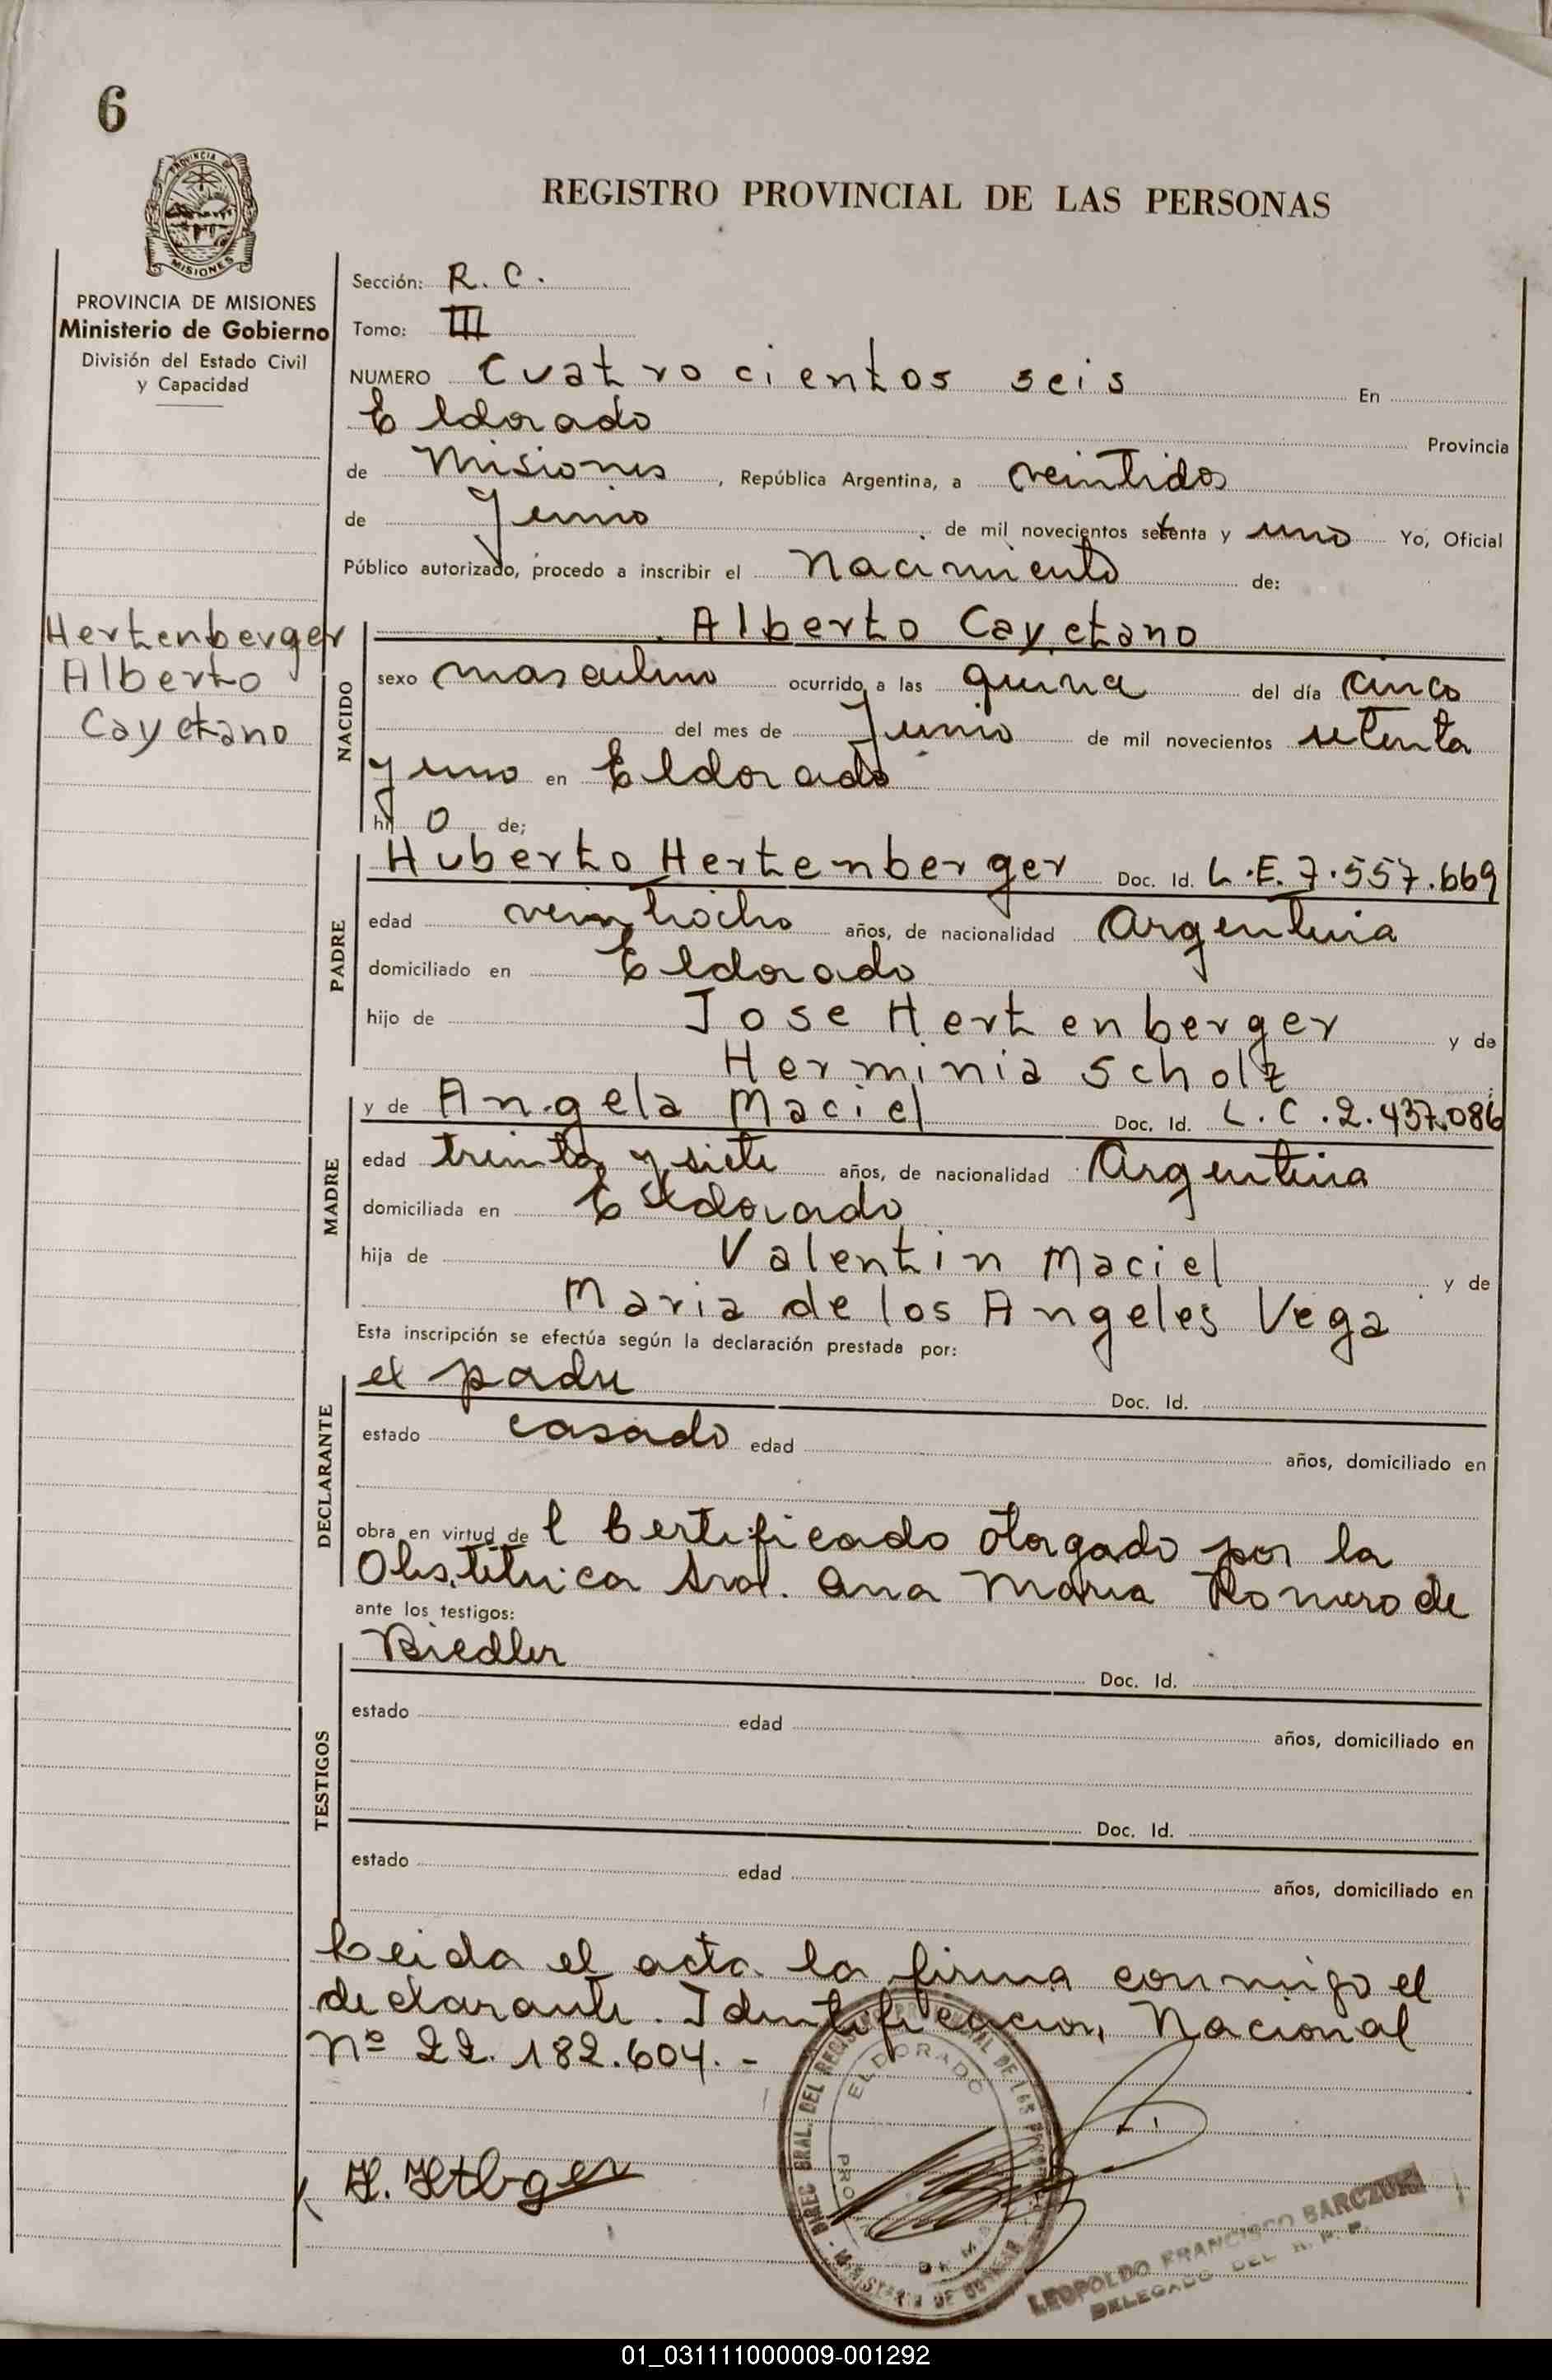 6
PROVINCIA DE
MISIONES
REGISTRO PROVINCIAL DE LAS PERSONAS
PROVINCIA DE MISIONES
Ministerio de Gobierno
División del Estado Civil
y Capacidad
Sección: R. C.
Tomo: III
NUMERO Cuatrocientos seis En
Eldorado Provincia
de Misiones, República Argentina, a veintidos
de Junio de mil novecientos setenta y uno Yo, Oficial
Público autorizado, procedo a inscribir el nacimiento de:
Hertenberger
Alberto
Cayetano
NACIDO
Alberto Cayetano
sexo masculino ocurrido a las quince del día cinco
del mes de Junio de mil novecientos setenta
y uno en Eldorado
hij o de;
PADRE
Huberto Hertenberger Doc. Id. L.E. 7.557.669
edad veintiocho años, de nacionalidad Argentina
domiciliado en Eldorado
hijo de Jose Hertenberger y de
Herminia Scholz
MADRE
y de Angela Maciel Doc. Id. L.C. 2.437.086
edad treinta y siete años, de nacionalidad Argentina
domiciliada en Eldorado
hija de Valentin Maciel y de
Maria de los Angeles Vega
Esta inscripción se efectúa según la declaración prestada por:
DECLARANTE
el padre Doc. Id.
estado casado edad años, domiciliado en
obra en virtud de l Certificado otorgado por la
Obstetrica Sra. Ana Maria Romero de
ante los testigos:
Biedler Doc. Id.
TESTIGOS
estado edad años, domiciliado en
Doc. Id.
estado edad años, domiciliado en
Leida el acta la firma conmigo el
declarante. Identificacion Nacional
Nº 22.182.604.-
H. Htbger
DIREC. GRAL. DEL REGISTRO PROVINCIAL DE LAS
ELDORADO
LEOPOLDO FRANCISCO BARCZUK
DELEGADO DEL R. P. P.
01_031111000009-001292